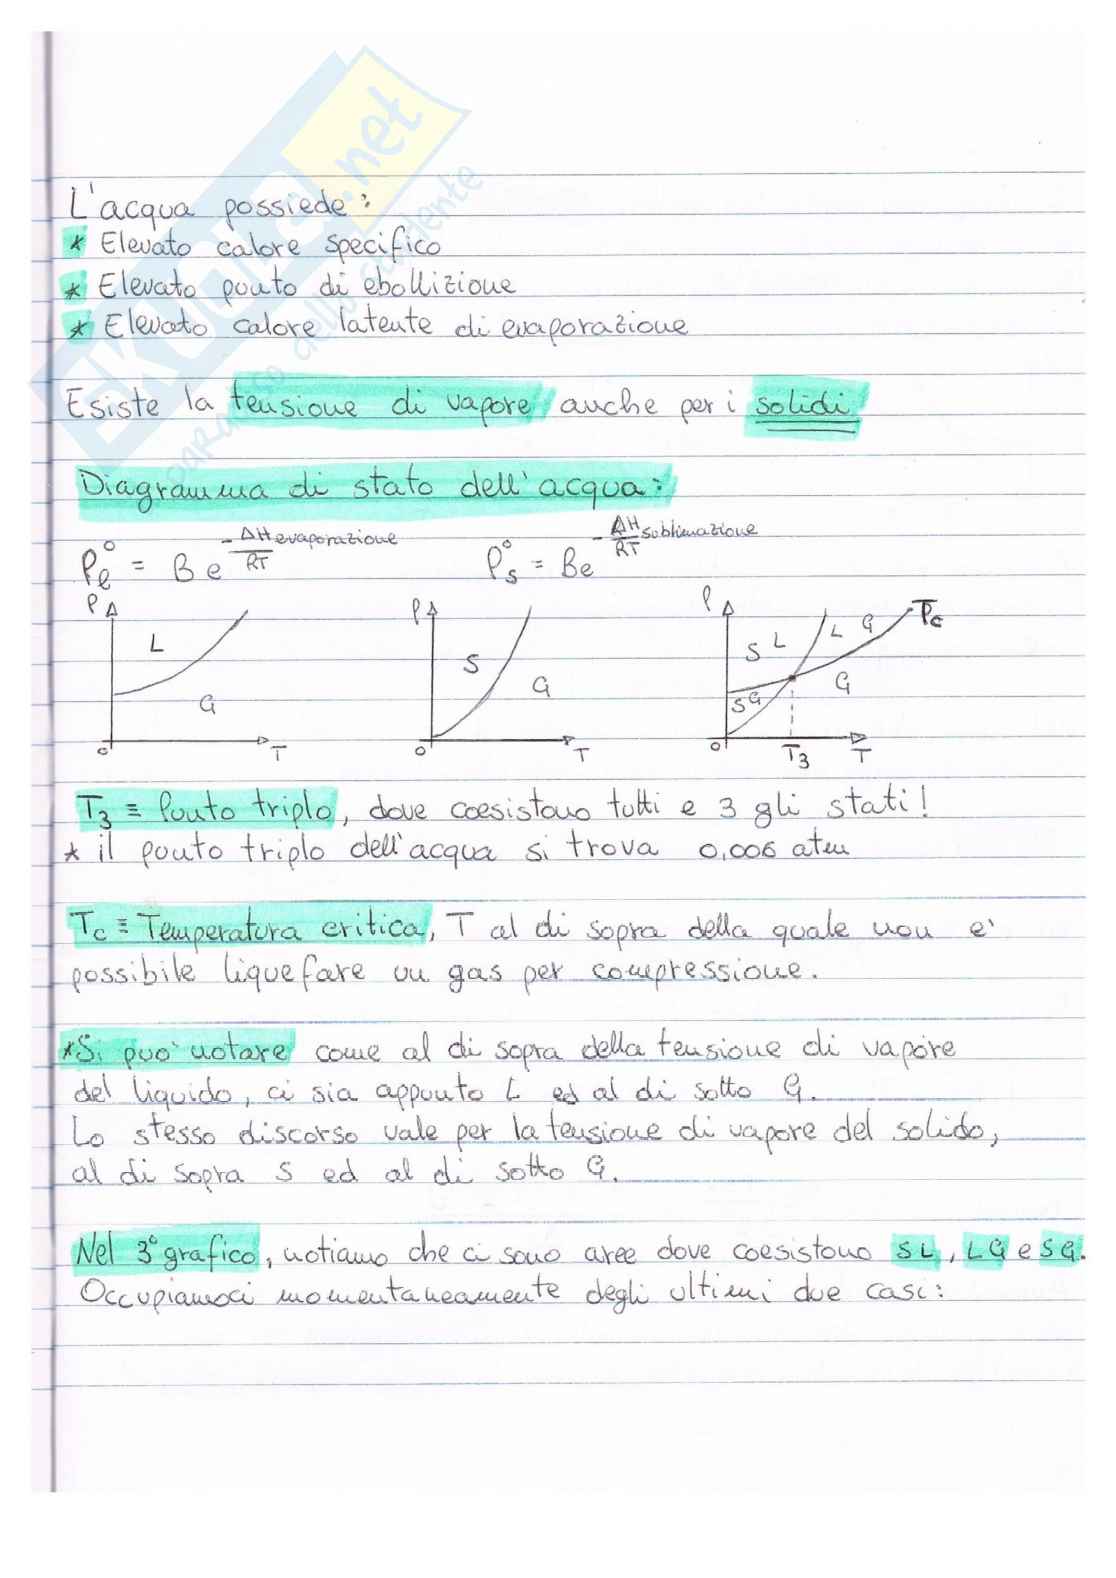 L'acqua possiede:
* Elevato calore specifico
* Elevato punto di ebollizione
* Elevato calore latente di evaporazione
Esiste la tensione di vapore anche per i solidi
Diagramma di stato dell'acqua:
P°ℓ = B e^(-ΔH evaporazione / RT)    P°s = B e^(-ΔH sublimazione / RT)
P L G 0 T
P S G 0 T
P S L L G Tc S G G 0 T3 T
T3 ≡ Punto triplo, dove coesistono tutti e 3 gli stati!
* il punto triplo dell'acqua si trova 0,006 atm
Tc ≡ Temperatura critica, T al di sopra della quale non e'
possibile liquefare un gas per compressione.
*Si puo' notare come al di sopra della tensione di vapore
del liquido, ci sia appunto L ed al di sotto G.
Lo stesso discorso vale per la tensione di vapore del solido,
al di sopra S ed al di sotto G.
Nel 3° grafico, notiamo che ci sono aree dove coesistono SL, LG e SG.
Occupiamoci momentaneamente degli ultimi due casi: